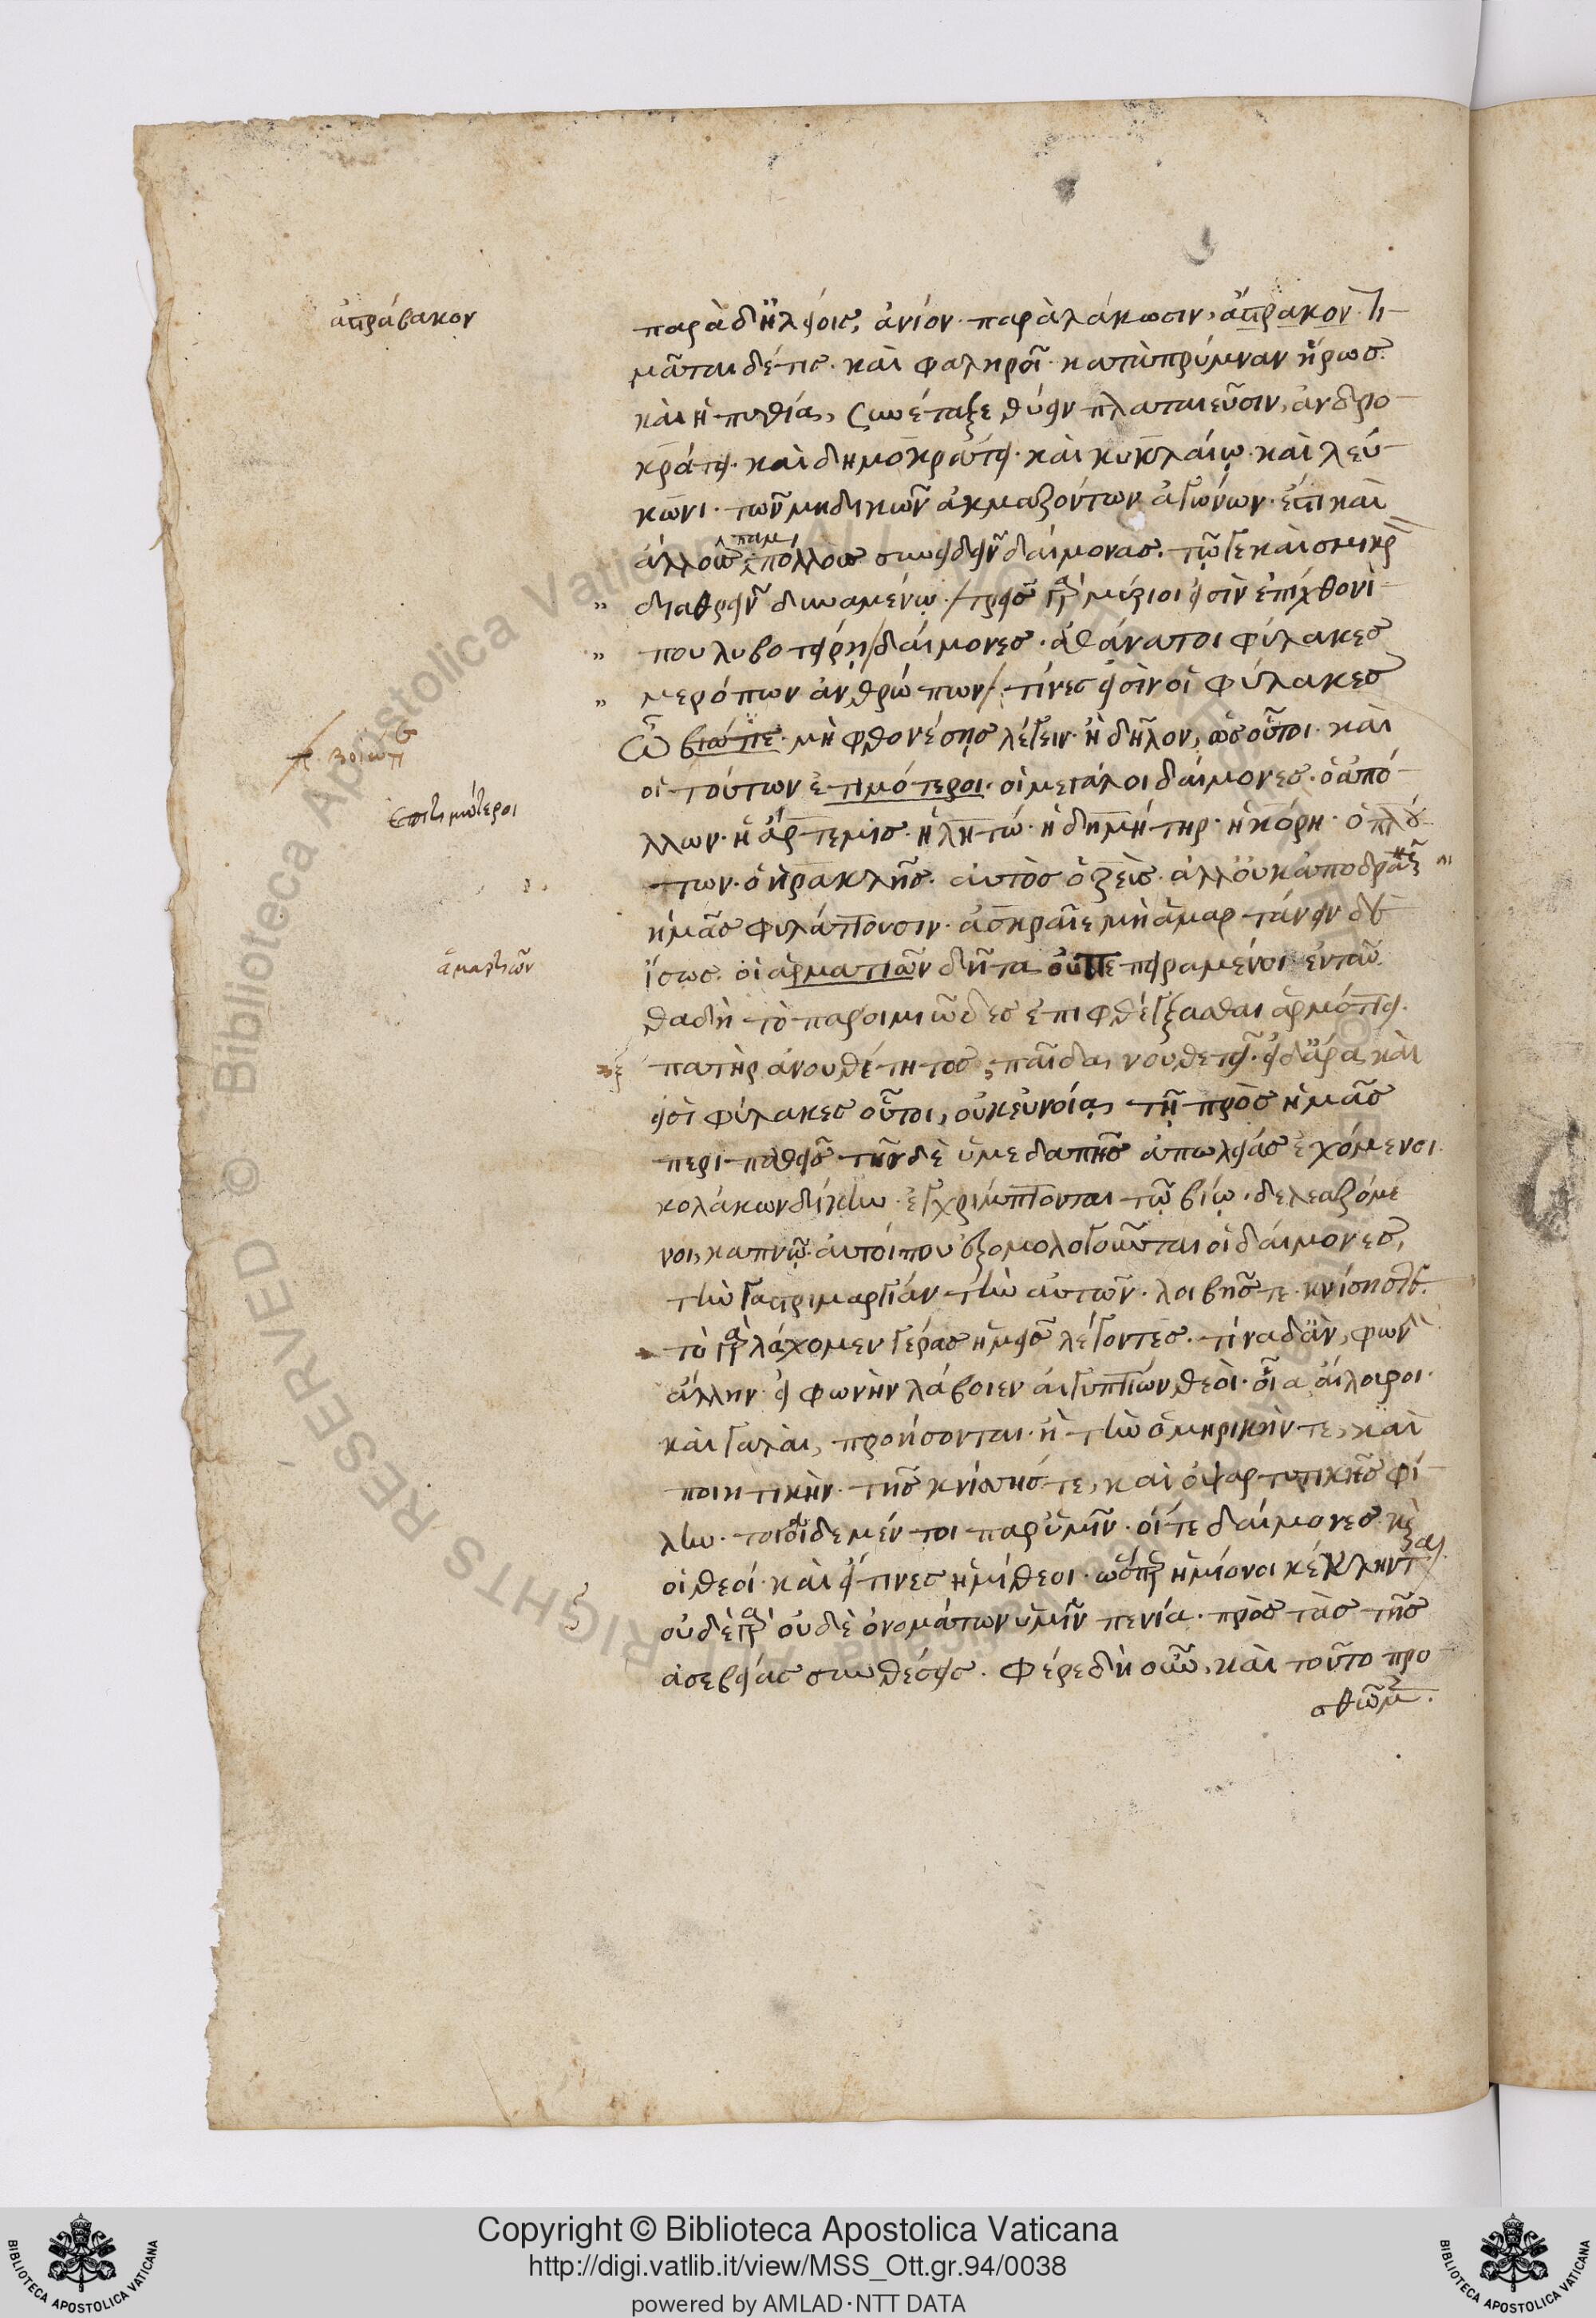 ἀστράβακον
παρὰ δ' ἤλείοις, ἀνίον· παρὰ λάκωσιν, ἄστρακον· τι
μᾶται δέ τις· καὶ φαληροῖ· κατὰ πρύμναν ἥρως·
καὶ ἡ πυθία, συνέταξε θύειν πλαταιεῦσιν, ἀνδρο
κράτει· καὶ δημοκράτει· καὶ κυκλαίῳ· καὶ λεύ
κωνι· τῶν μηδικῶν ἀκμαζόντων ἀγώνων· ἔστι καὶ
παμ
ἄλλους πολλοὺς συνιδεῖν δαίμονας· τῷ γε καὶ σμικρὸν
διαθρεῖν δυναμένῳ· τρεῖς γὰρ μύριοί εἰσιν ἐπὶ χθονὶ
πουλυβοτείρῃ δαίμονες· ἀθάνατοι φύλακες
μερόπων ἀνθρώπων· τίνες εἰσὶν οἱ φύλακες
βοιώτιε
ὦ βιώτιε· μὴ φθονέσῃς λέγειν· ἢ δῆλον, ὡς οὗτοι· καὶ
οἱ τούτων ἐτιμότεροι· οἱ μεγάλοι δαίμονες· ὁ ἀπό
ἐπιτιμότεροι
λλων· ἡ ἄρτεμις· ἡ λητώ· ἡ δημήτηρ· ἡ κόρη· ὁ πλού
των· ὁ ἡρακλῆς· αὐτὸς ὁ ζεύς· ἀλλ' οὐκ ἀποδρᾶναι
ἡμᾶς φυλάττουσιν· ἀσκραῖε μὴ ἁμαρτάνειν δὲ
ἁμαρτιῶν
ἴσως· οἱ ἁρματιῶν δῆτα οὐ πεπειραμένοι ἐνταῦ
θα δὴ τὸ παροιμιῶδες ἐπιφθέγξασθαι ἁρμόττει·
πατὴρ ἀνουθέτητος, παῖδα νουθετεῖ· εἰ δ' ἄρα καὶ
εἰσὶ φύλακες οὗτοι, οὐκ εὐνοίᾳ τῇ πρὸς ἡμᾶς
περιπαθεῖς· τῆς δὲ ὑμεδαπῆς ἀπωλείας ἐχόμενοι
κολάκων δίκην· ἐγχρίμπτονται τῷ βίῳ· δελεαζόμε
νοι, καπνῷ· αὐτοί που ἐξομολογοῦνται οἱ δαίμονες,
τὴν γαστριμαργίαν τὴν αὐτῶν· λοιβῆς τε κνίσης τε·
τὸ γὰρ λάχομεν γέρας ἡμεῖς λέγοντες· τίνα δ' ἂν, φωνὴν
ἄλλην· εἰ φωνὴν λάβοιεν αἰγυπτίων θεοί· οἷα αἴλουροι·
καὶ γαλαῖ, προήσονται· ἢ τὴν ὁμηρικήν τε, καὶ
ποιητικὴν· τῆς κνίσης τε, καὶ ὀψαρτυτικῆς φί
λην· τοιοίδε μέν τοι παρ' ὑμῖν· οἵ τε δαίμονες καὶ
οἱ θεοί· καὶ εἴ τινες ἡμίθεοι· ὥσπερ ἡμίονοι κέκληνται
οὐδὲ γὰρ οὐδὲ ὀνομάτων ὑμῖν πενία· πρὸς τὰς τῆς
ἀσεβείας συνθέσεις· Φέρε δὴ οὖν, καὶ τοῦτο προ
σθῶμεν·
Copyright © Biblioteca Apostolica Vaticana
http://digi.vatlib.it/view/MSS_Ott.gr.94/0038
powered by AMLAD·NTT DATA
BIBLIOTECA APOSTOLICA VATICANA
BIBLIOTECA APOSTOLICA VATICANA